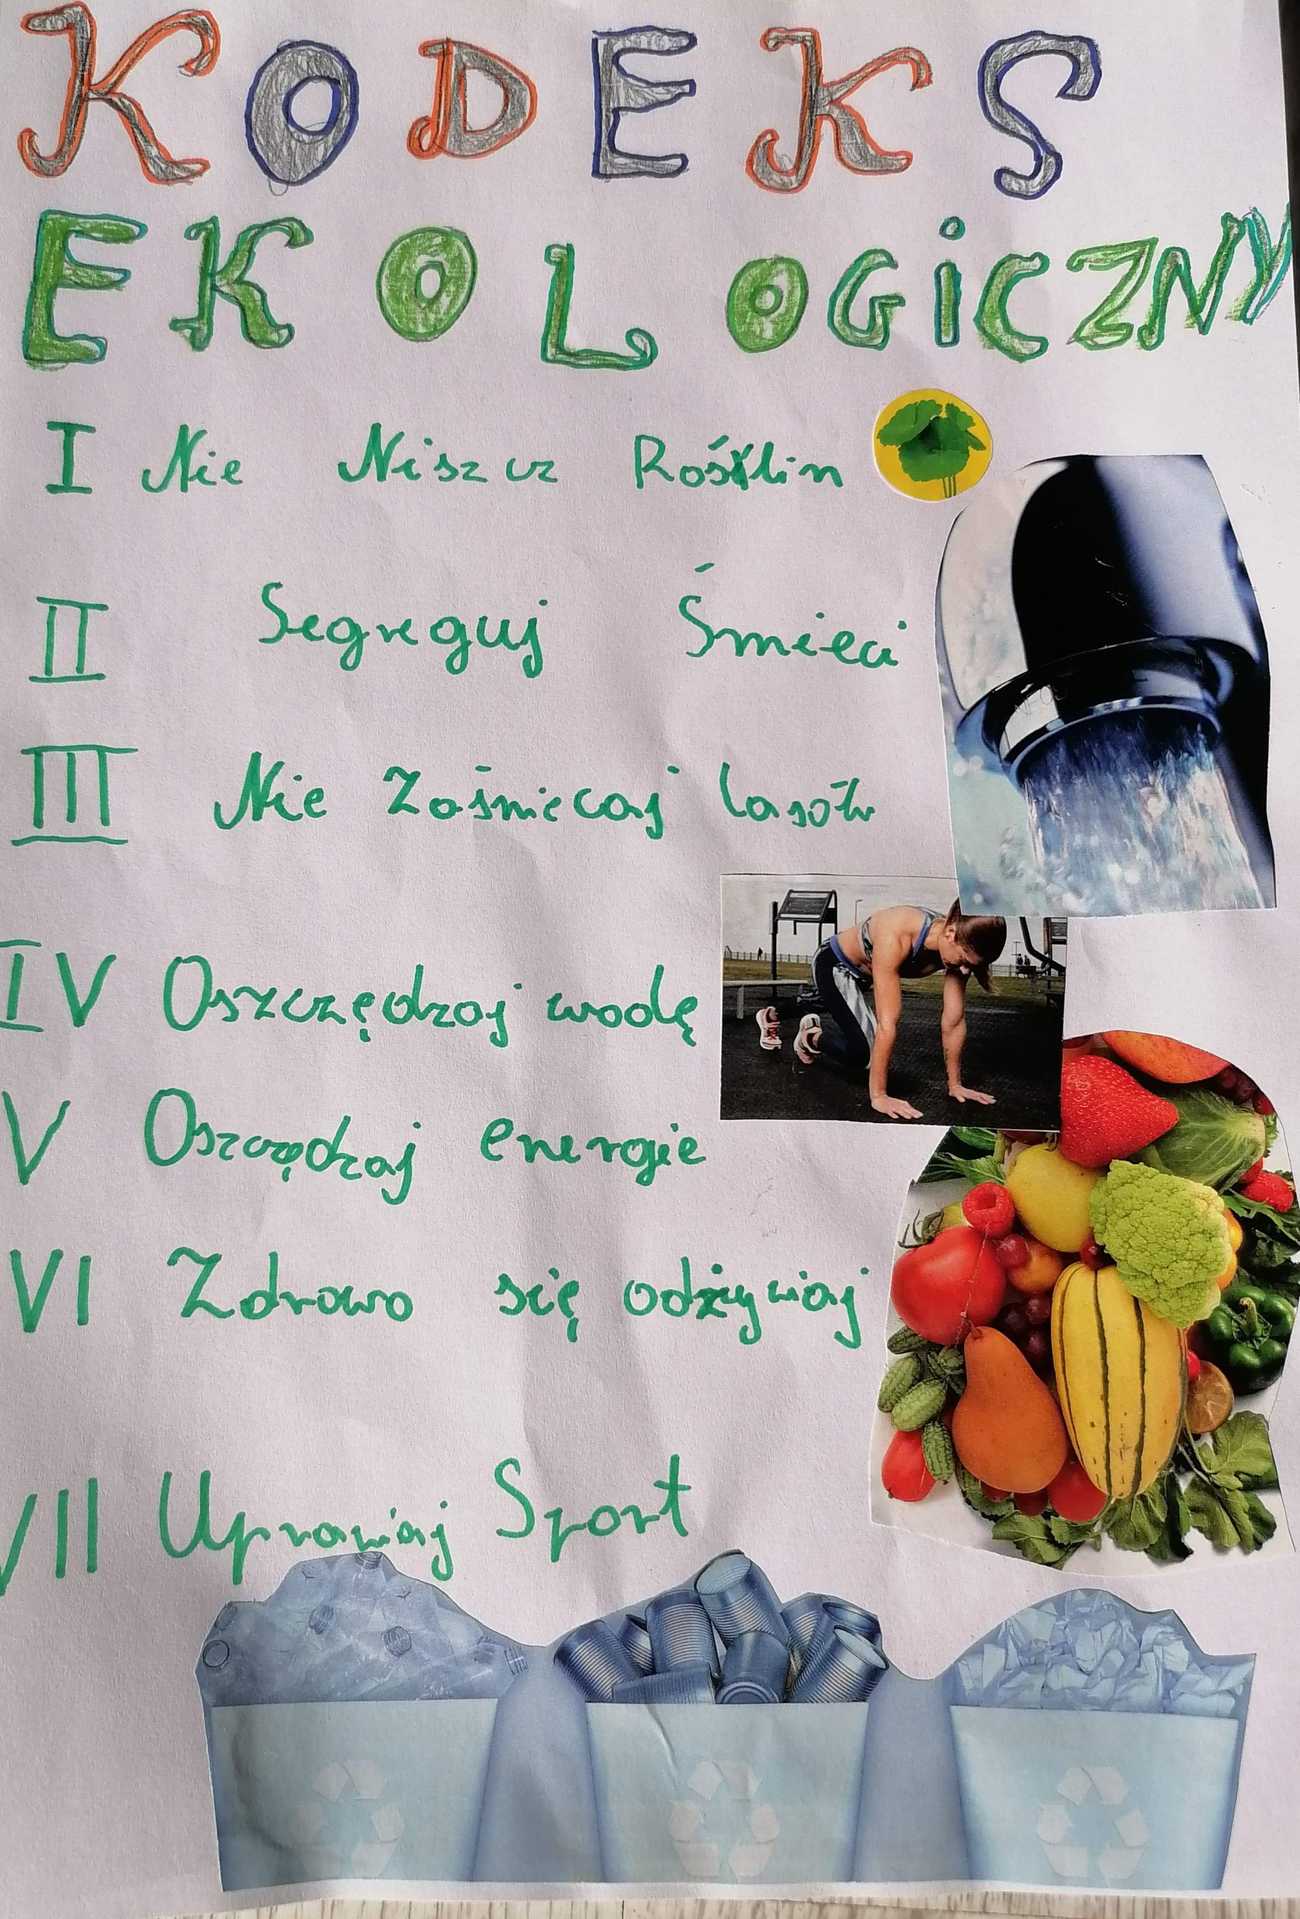 KODEKS
EKOLOGiCZNY
I Nie Niszcz Roślin
II Segreguj Śmieci
III Nie Zaśmiecaj lasów
IV Oszczędzaj wodę
V Oszczędzaj energie
VI Zdrowo się odżywiaj
VII Uprawiaj Sport